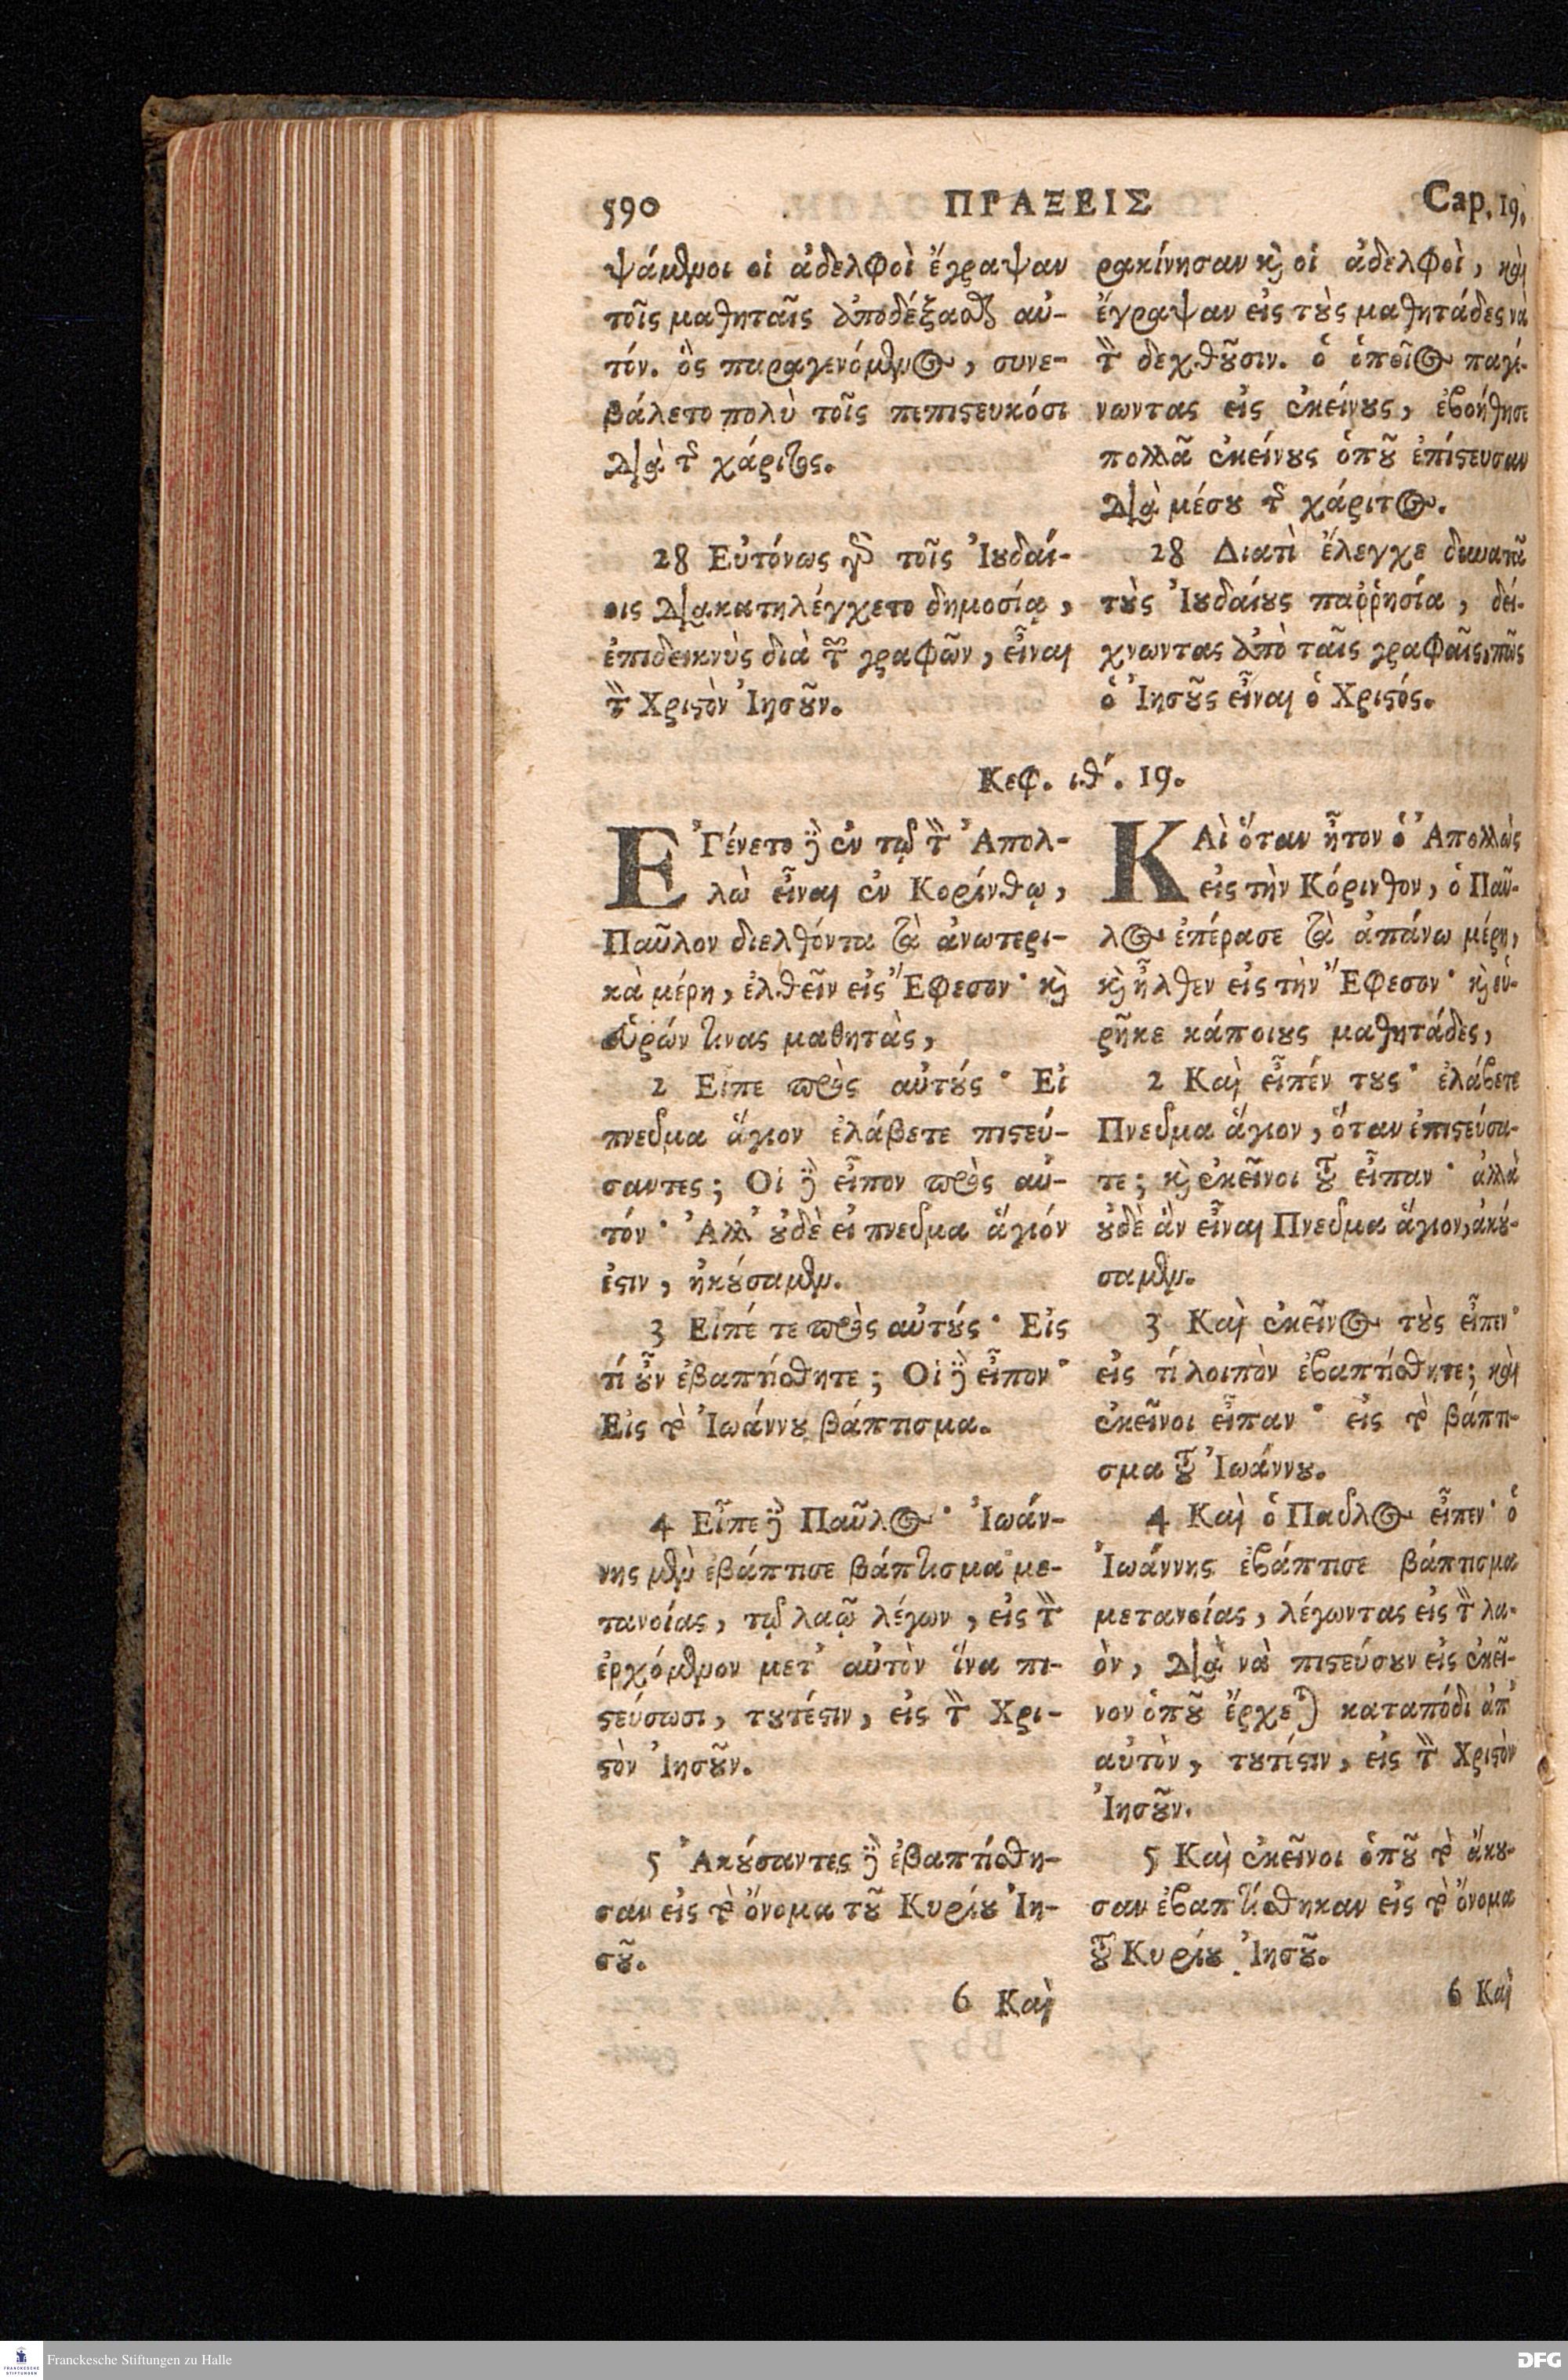 590 ΠΡΑΞΕΙΣ Cap. 19.
ψάμενοι οἱ ἀδελφοὶ ἔγραψαν
τοῖς μαθηταῖς ἀποδέξασθαι αὐ-
τόν. ὃς παραγενόμενος, συνε-
βάλετο πολὺ τοῖς πεπιϛευκόσι
διὰ τῆς χάριτος.
28 Εὐτόνως γὰρ τοῖς Ἰȣδαί-
οις διακατηλέγχετο δημοσίᾳ,
ἐπιδεικνὺς διὰ τῶν γραφῶν, εἶναι
τὸν Χριϛὸν Ἰησȣ͂ν.
ρακίνησαν κὶ οἱ ἀδελφοὶ, καὶ
ἔγραψαν εἰς τȣ̀ς μαθητάδες νὰ
τὸν δεχθȣ͂σιν. ὁ ὁποῖος παγί-
νωντας εἰς ἐκείνȣς, ἐβοήθησε
πολλᾶ ἐκείνȣς ὁπȣ͂ ἐπίϛευσαν
διὰ μέσȣ τῆς χάριτος.
28 Διατὶ ἔλεγχε δυνατᾶ
τȣ̀ς Ἰȣδαίȣς παῤῥησία, δεί-
χνωντας ἀπὸ ταῖς γραφαῖς, πῶς
ὁ Ἰησȣ͂ς εἶναι ὁ Χριϛός.
Κεφ. ιθ΄. 19.
ἘΓένετο δὲ ἐν τῷ τὸν Ἀπολ-
λὼ εἶναι ἐν Κορίνθῳ,
Παῦλον διελθόντα τὰ ἀνωτερι-
κὰ μέρη, ἐλθεῖν εἰς Ἔφεσον· κὶ
εὑρών τινας μαθητὰς,
2 Εἶπε πρὸς αὐτȣ́ς· Εἰ
πνεῦμα ἅγιον ἐλάβετε πιϛεύ-
σαντες; Οἱ δὲ εἶπον πρὸς αὐ-
τόν· Ἀλλ' ȣ̓δὲ εἰ πνεῦμα ἅγιόν
ἐϛιν, ἠκȣ́σαμεν.
3 Εἶπέ τε πρὸς αὐτȣ́ς· Εἰς
τί ȣ̓͂ν ἐβαπτίσθητε; Οἱ δὲ εἶπον·
Εἰς τὸ Ἰωάννȣ βάπτισμα.
4 Εἶπε δὲ Παῦλος· Ἰωάν-
νης μὲν ἐβάπτισε βάπτισμα με-
τανοίας, τῷ λαῷ λέγων, εἰς τὸν
ἐρχόμενον μετ' αὐτὸν ἵνα πι-
ϛεύσωσι, τȣτέϛιν, εἰς τὸν Χρι-
ϛὸν Ἰησȣ͂ν.
5 Ἀκȣ́σαντες δὲ ἐβαπτίσθη-
σαν εἰς τὸ ὄνομα τȣ͂ Κυρίȣ Ἰη-
σȣ͂.
6 Καὶ
ΚΑὶ ὅταν ἦτον ὁ Ἀπολλὼς
εἰς τὴν Κόρινθον, ὁ Παῦ-
λος ἐπέρασε τὰ ἀπάνω μέρη,
κὶ ἦλθεν εἰς τὴν Ἔφεσον· κὶ εὑ-
ρῆκε κάποιȣς μαθητάδες,
2 Καὶ εἶπέν τȣς· ἐλάβετε
Πνεῦμα ἅγιον, ὅταν ἐπιϛεύσα-
τε; κὶ ἐκεῖνοι τȣ͂ εἶπαν· ἀλλὰ
ȣ̓δὲ ἂν εἶναι Πνεῦμα ἅγιον, ἀκȣ́-
σαμεν.
3 Καὶ ἐκεῖνος τȣ̀ς εἶπεν·
εἰς τί λοιπὸν ἐβαπτίσθητε; καὶ
ἐκεῖνοι εἶπαν· εἰς τὸ βάπτι-
σμα τȣ͂ Ἰωάννȣ.
4 Καὶ ὁ Παῦλος εἶπεν· ὁ
Ἰωάννης ἐβάπτισε βάπτισμα
μετανοίας, λέγωντας εἰς τὸν λα-
ὸν, διὰ νὰ πιϛεύσȣν εἰς ἐκεῖ-
νον ὁπȣ͂ ἔρχεται καταπόδι ἀπ'
αὐτὸν, τȣτέϛιν, εἰς τὸν Χριϛὸν
Ἰησȣ͂ν.
5 Καὶ ἐκεῖνοι ὁπȣ͂ τὸ ἄκȣ-
σαν ἐβαπτίσθηκαν εἰς τὸ ὄνομα
τȣ͂ Κυρίȣ Ἰησȣ͂.
6 Καὶ
Franckesche Stiftungen zu Halle
DFG